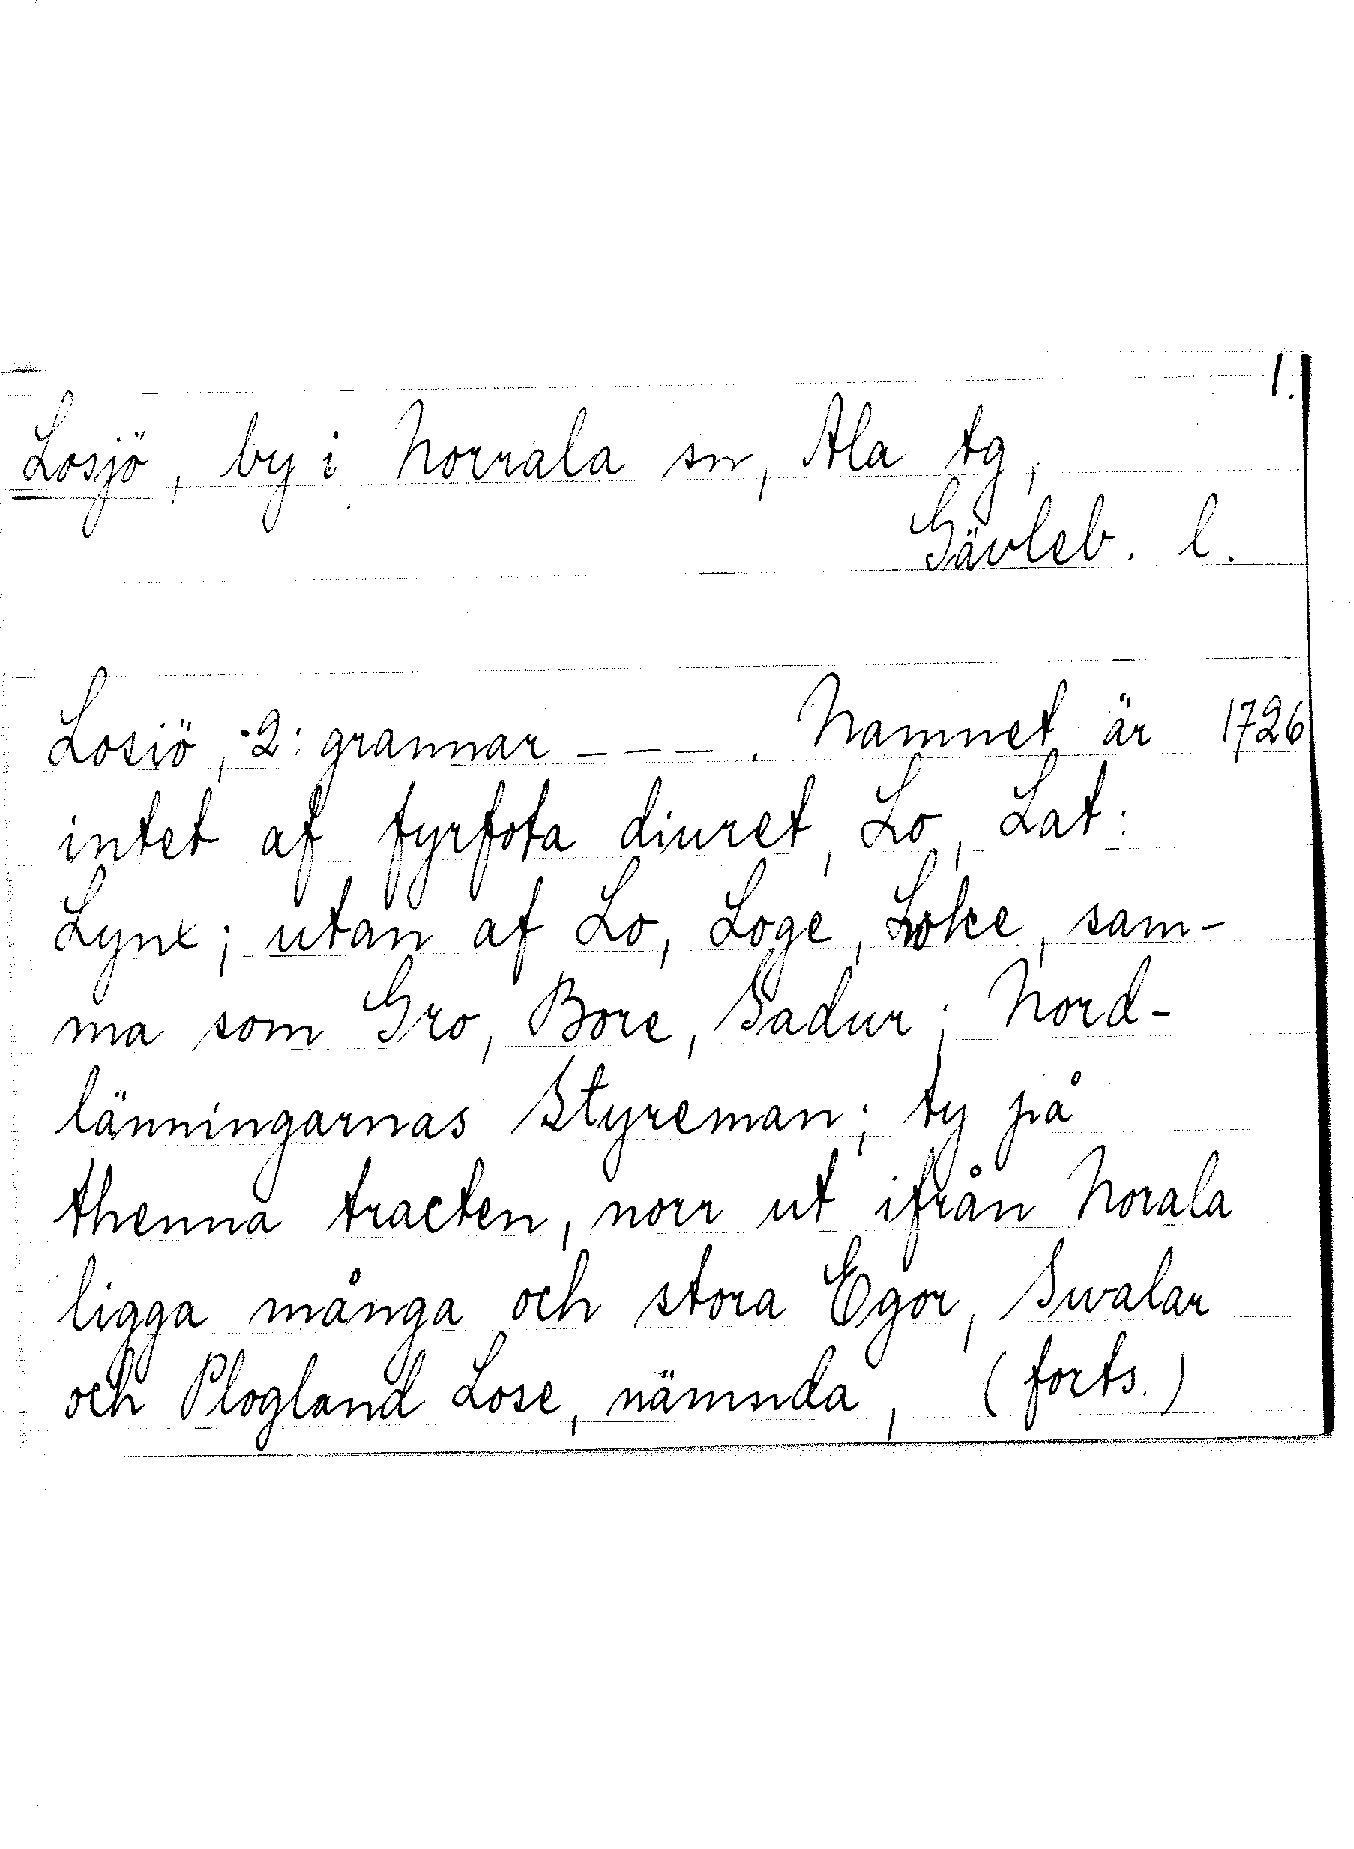 1.
Losjö, by i Norrala sn, Ala tg,
Gävleb. l.
Losiö, 2: grannar ----. Namnet är 1726
intet af fyrfota diuret, Lo, Lat:
Lynx; utan af Lo, Loge, Loke, sam-
ma som Gro, Bore, Sadur; Nord-
länningarnas Styreman; ty på
thenna tracten, norr ut ifrån Norala
ligga många och stora Egor, Swalar
och Plogland Lose, nämnda, (forts.)